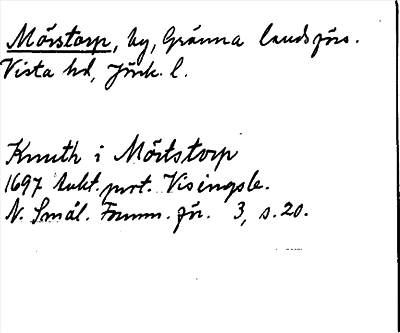 Mörstorp, by, Gränna landsförs.
Vista hd, Jönk. l.
Knuth i Mörtstorp
1697 prt. Visingsb.
N. Smål. Fornm. för. 3, s. 20.